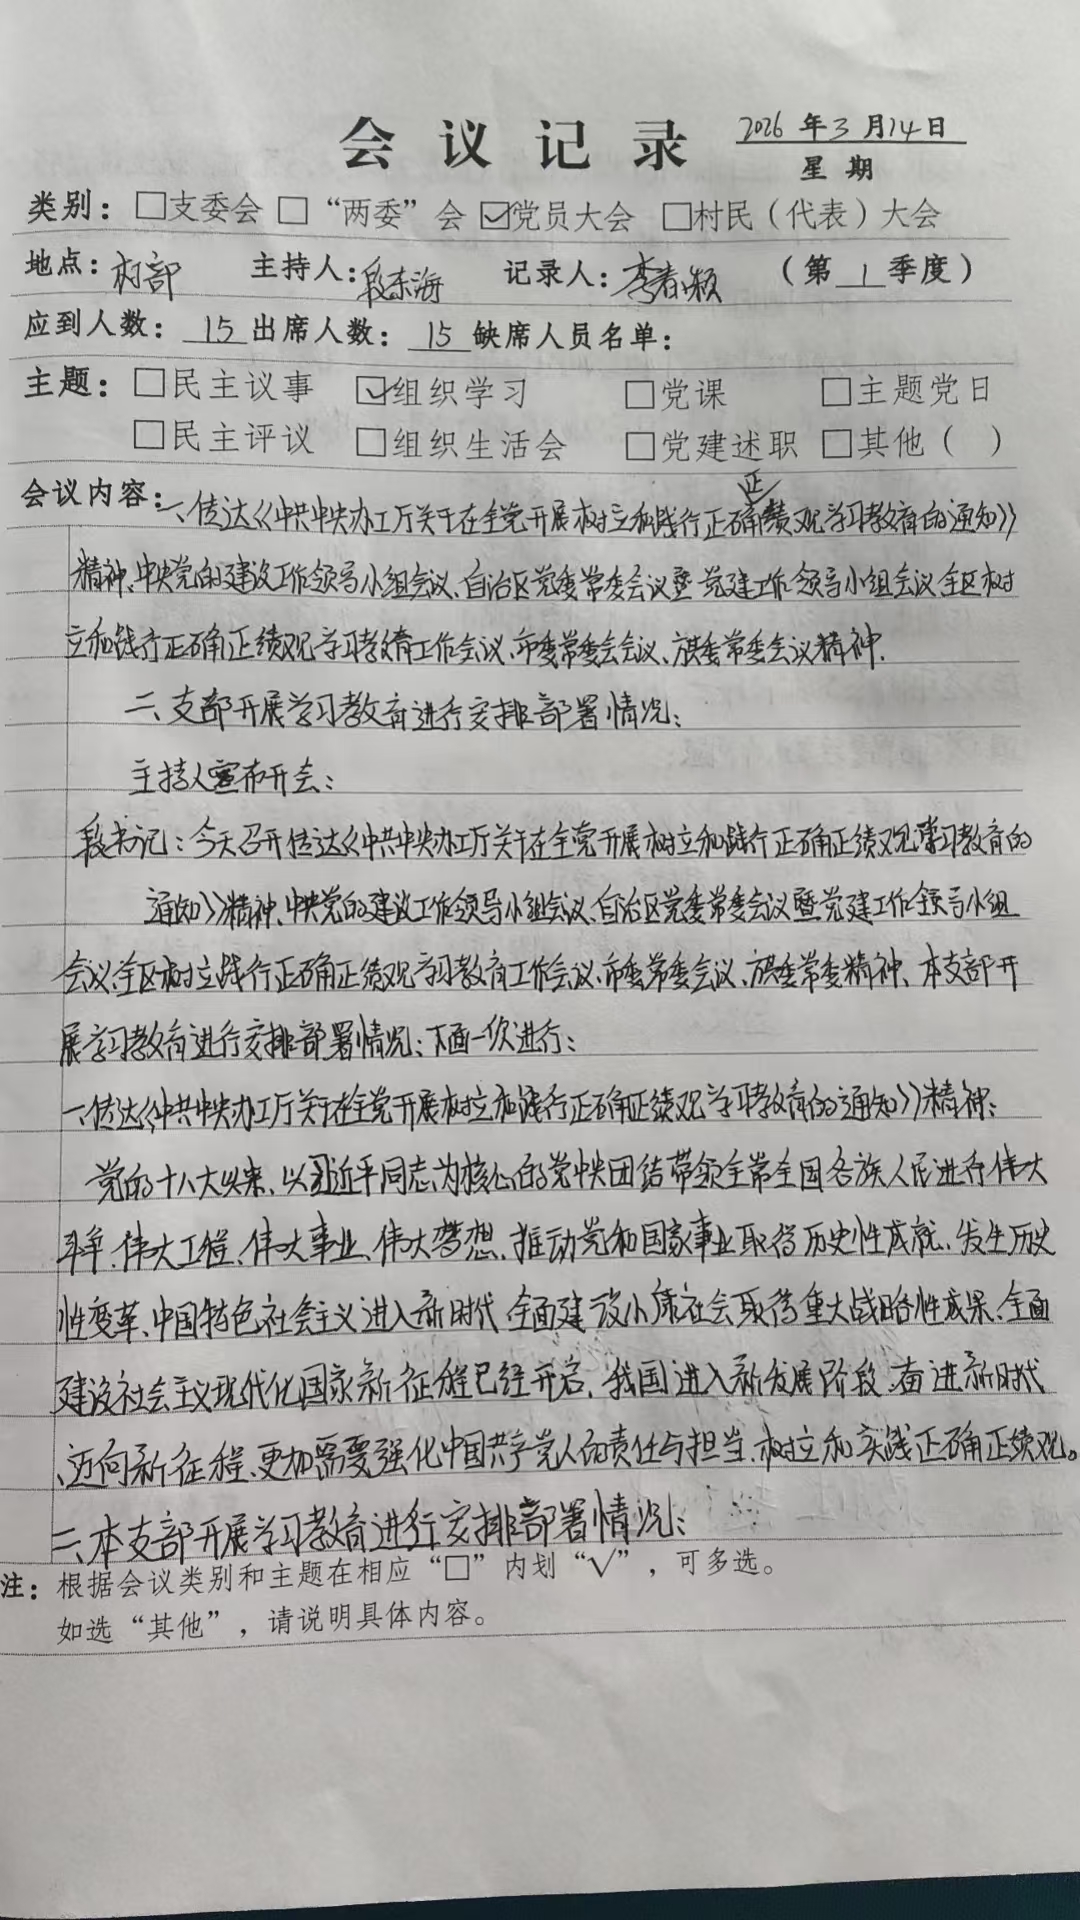 会议记录 2026年3月14日
星期
类别：□支委会 □“两委”会 ☑党员大会 □村民（代表）大会
地点：村部 主持人：段东海 记录人：李春颖 （第1季度）
应到人数：15 出席人数：15 缺席人员名单：
主题：□民主议事 ☑组织学习 □党课 □主题党日
□民主评议 □组织生活会 □党建述职 □其他（ ）
会议内容：一、传达《中共中央办工厅关于在全党开展树立和践行正确正绩观学习教育的通知》
精神、中央党的建设工作领导小组会议、自治区党委常委会议暨党建工作领导小组会议、全区树
立和践行正确正绩观学习教育工作会议、市委常委会会议、旗委常委会议精神.
二、支部开展学习教育进行安排部署情况；
主持人宣布开会；
段书记：今天召开传达《中共中央办工厅关于在全党开展树立和践行正确正绩观学习教育的
通知》精神、中央党的建设工作领导小组会议、自治区党委常委会议暨党建工作领导小组
会议、全区树立践行正确正绩观学习教育工作会议、市委常委会议、旗委常委精神、本支部开
展学习教育进行安排部署情况；下面一次进行；
一、传达《中共中央办工厅关于在全党开展树立和践行正确正绩观学习教育的通知》精神；
党的十八大以来、以习近平同志为核心的党中央团结带领全党全国各族人民进行伟大
斗争、伟大工程、伟大事业、伟大梦想、推动党和国家事业取得历史性成就、发生历史
性变革、中国特色社会主义进入新时代、全面建设小康社会取得重大战略性成果、全面
建设社会主义现代化国家新征程已经开启，我国进入新发展阶段、奋进新时代
、迈向新征程、更加需要强化中国共产党人的责任与担当、树立和实践正确正绩观。
二、本支部开展学习教育进行安排部署情况；
注：根据会议类别和主题在相应“□”内划“√”，可多选。
如选“其他”，请说明具体内容。